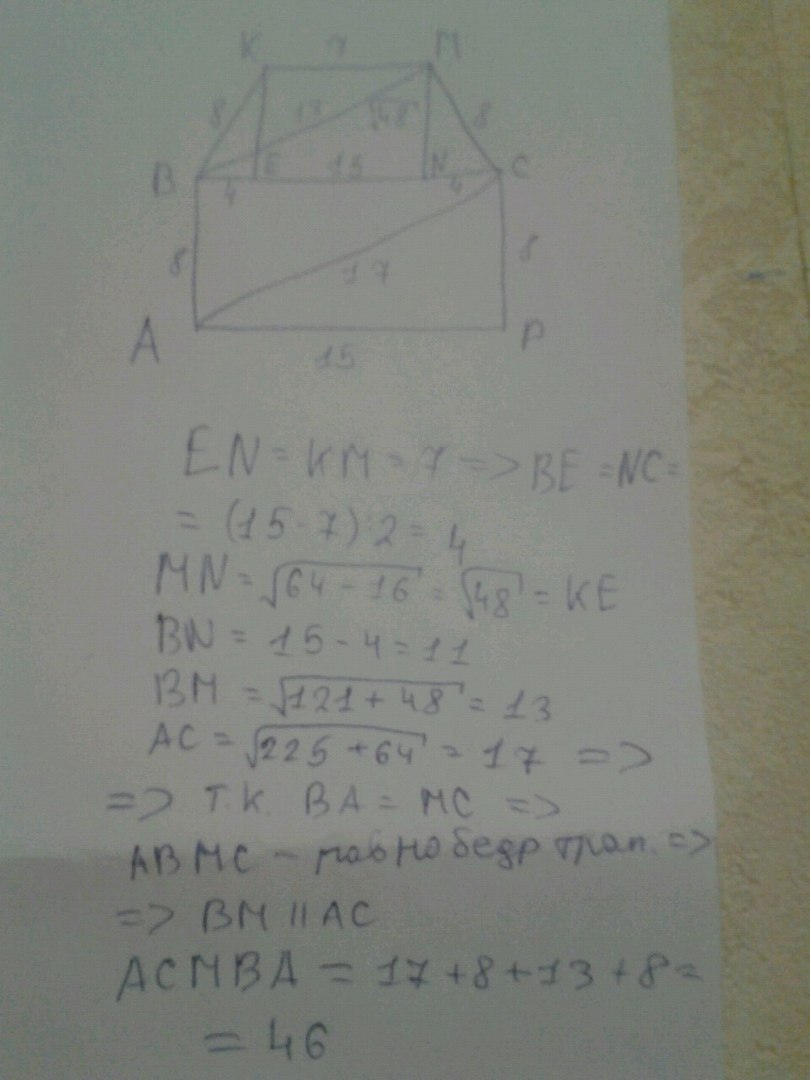 K 7 M
8 13 √48 8
B E 15 N C
4 4
8 17 8
A P
15
EN = KM = 7 => BE = NC =
= (15 - 7) : 2 = 4
MN = √64 - 16 = √48 = KE
BN = 15 - 4 = 11
BM = √121 + 48 = 13
AC = √225 + 64 = 17 =>
=> Т.К. BA = MC =>
ABMC - равнобедр трап. =>
=> BM || AC
ACMBA = 17 + 8 + 13 + 8 =
= 46